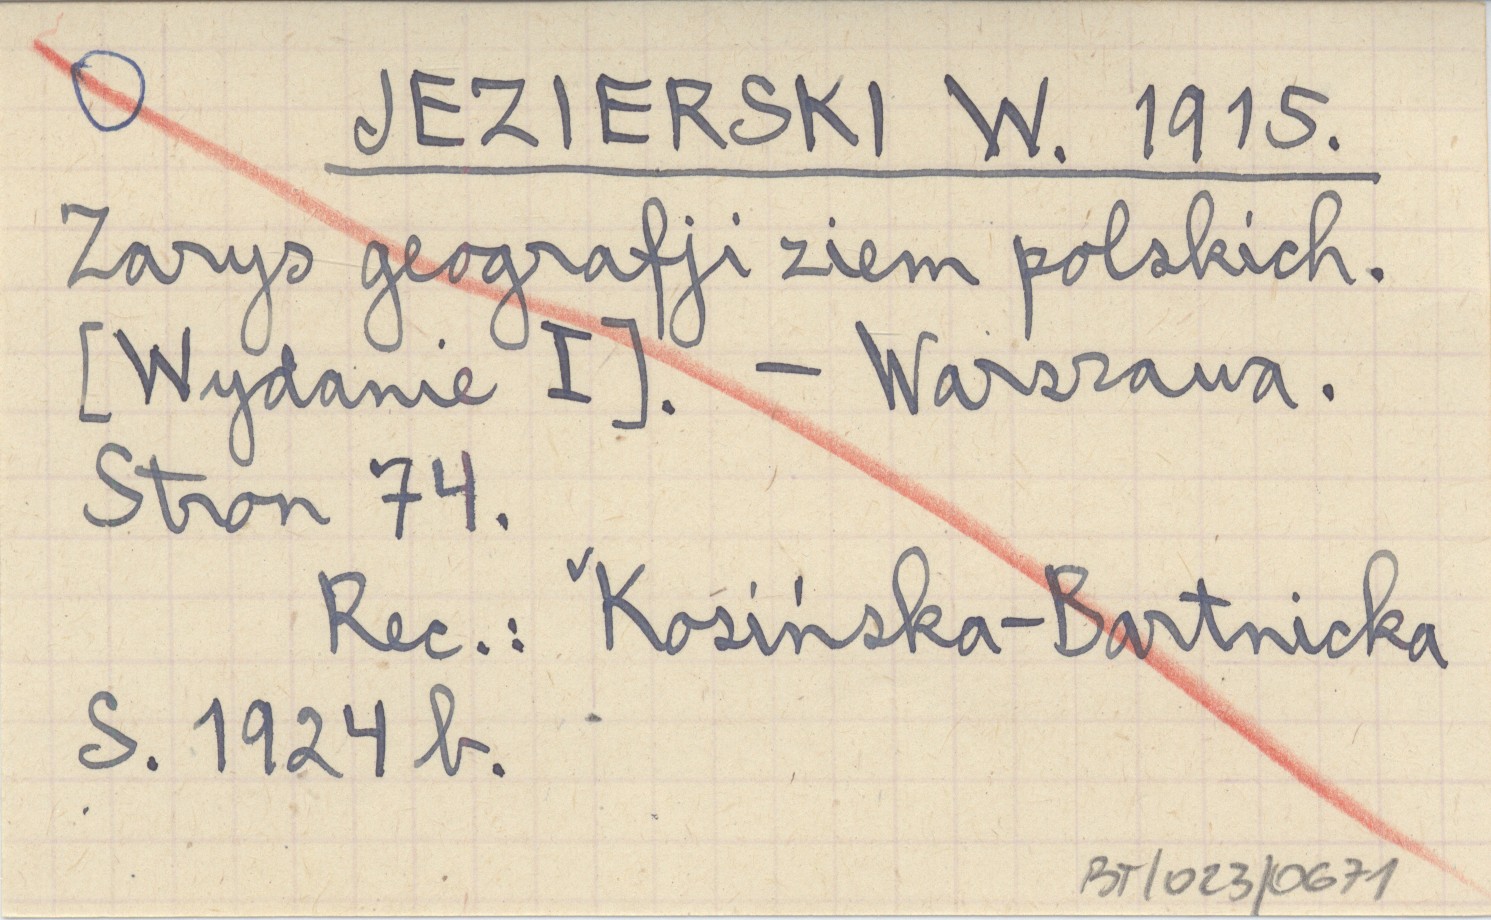 JEZIERSKI W. 1915.
Zarys geografji ziem polskich.
[Wydanie I]. – Warszawa.
Stron 74.
Rec.: Kosińska-Bartnicka
S. 1924 b.
BT/023/0671